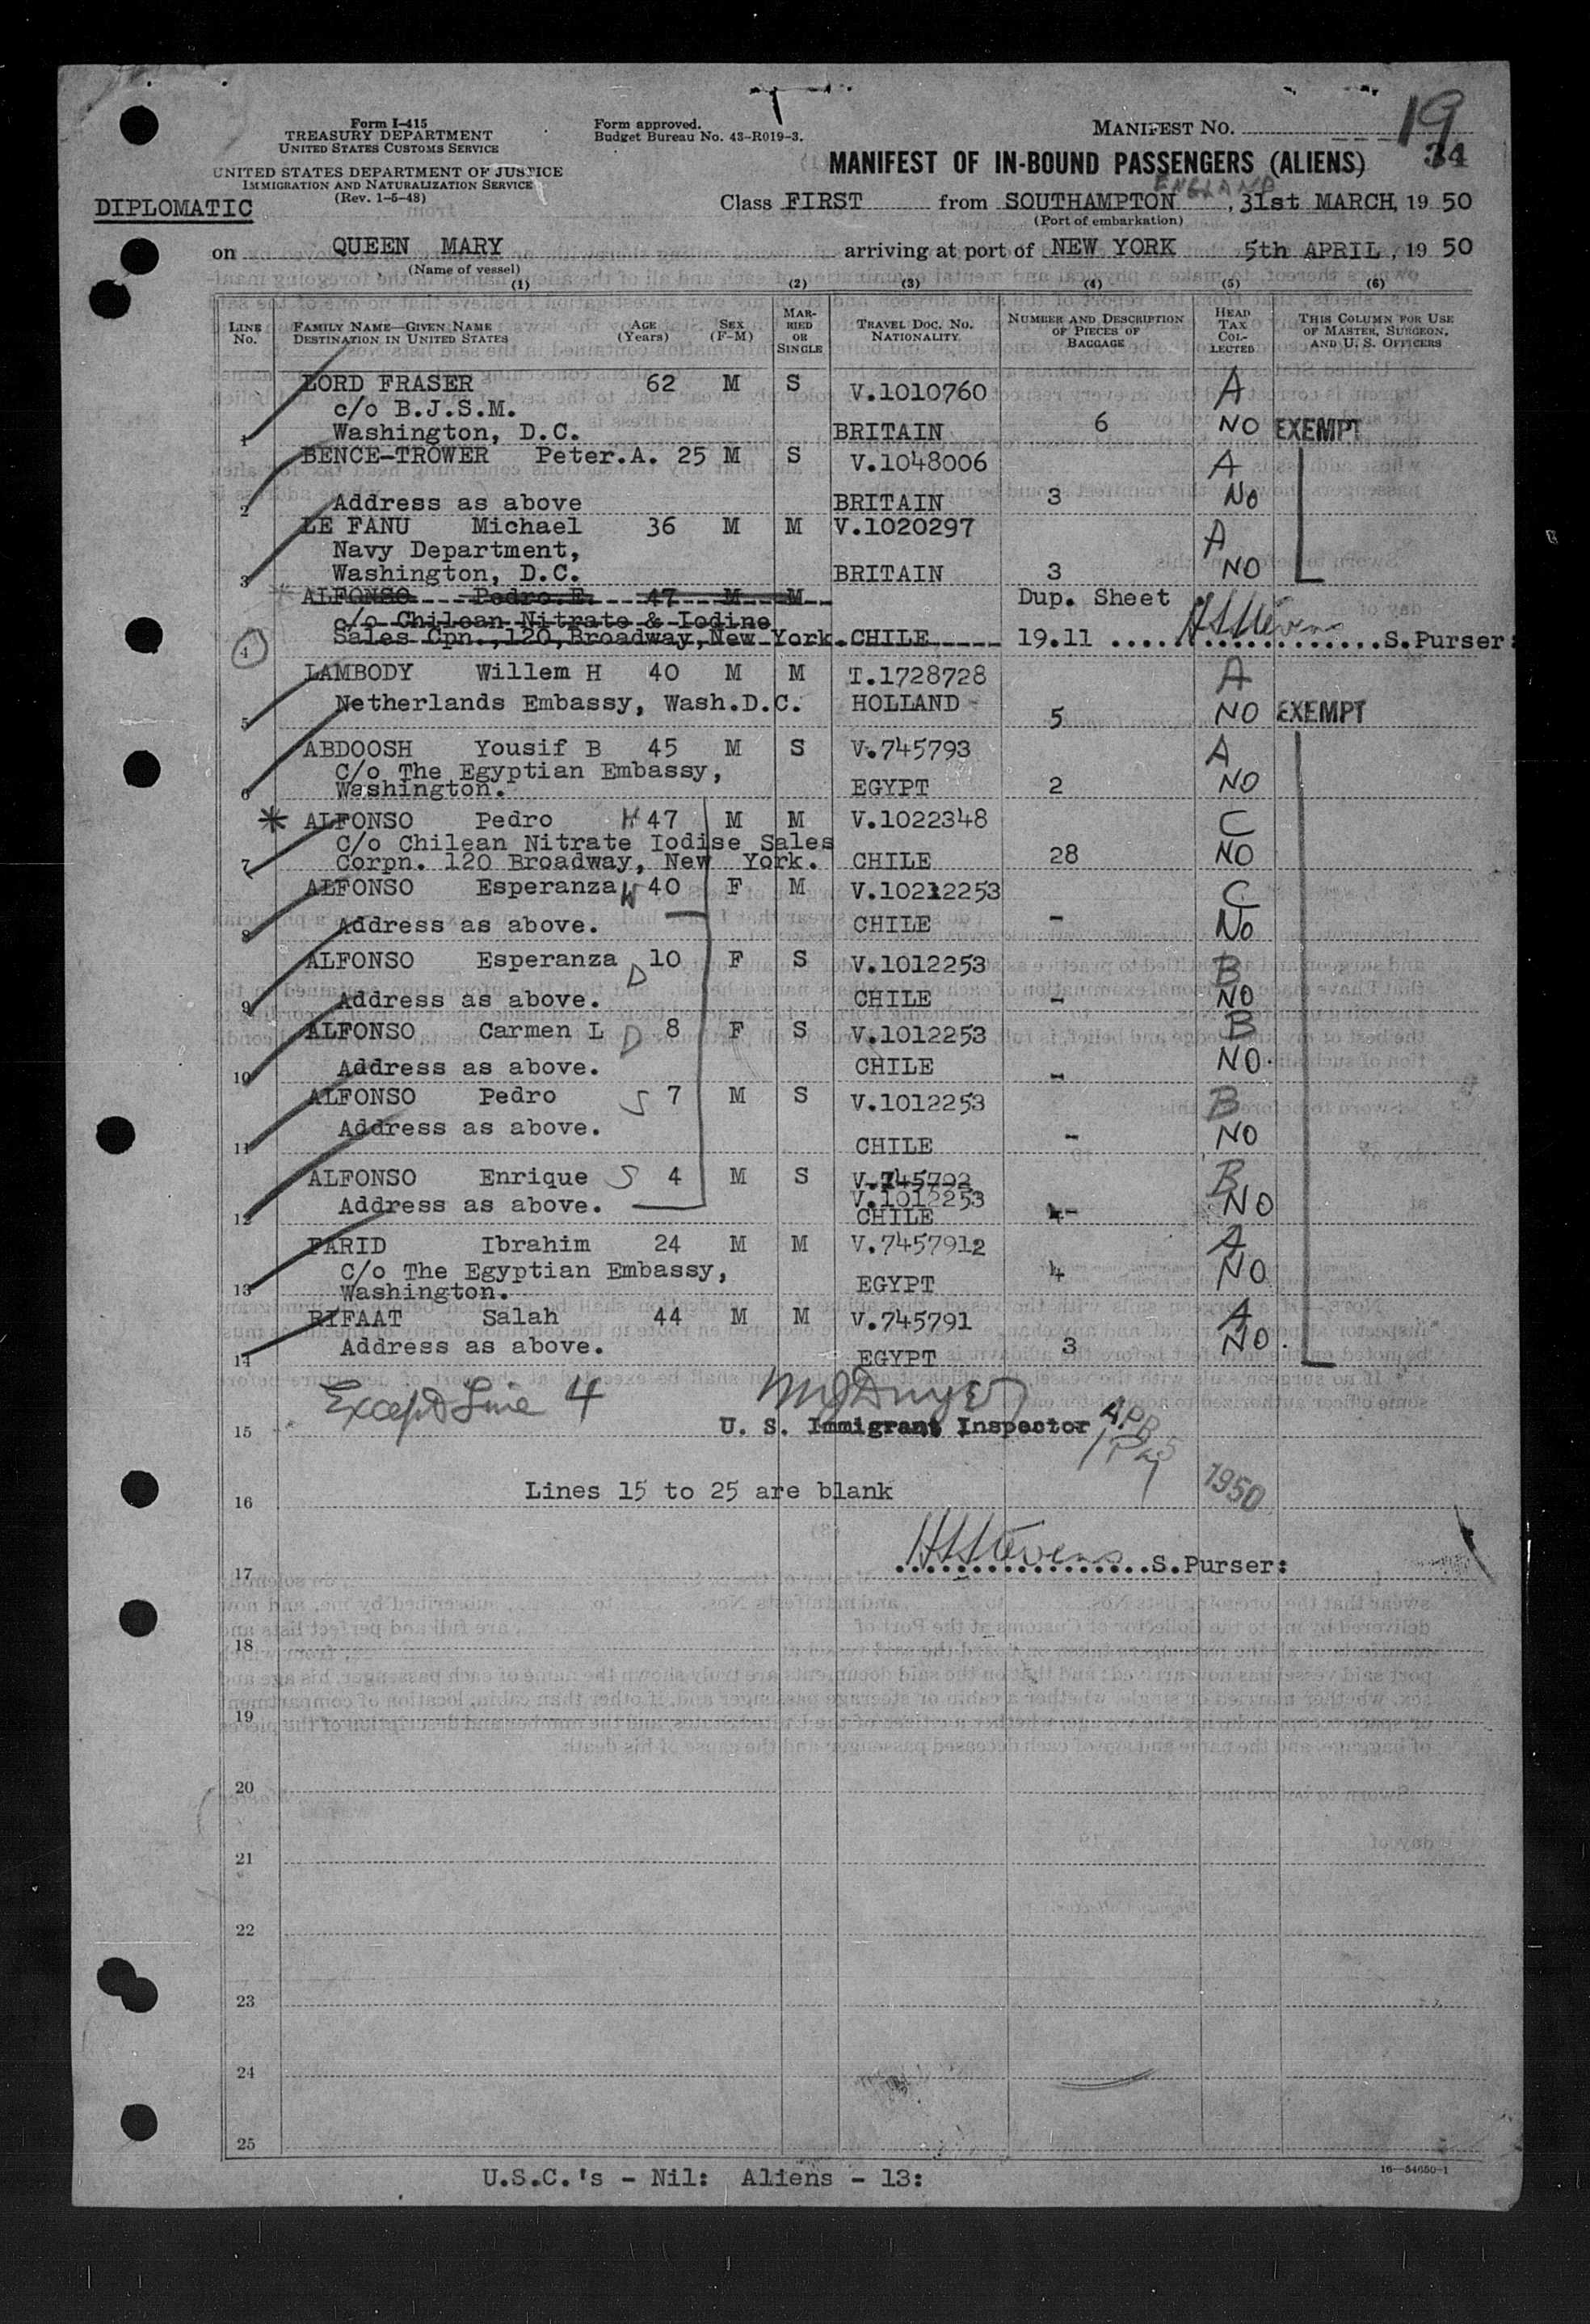 19
Form I-415
TREASURY DEPARTMENT
UNITED STATES CUSTOMS SERVICE
UNITED STATES DEPARTMENT OF JUSTICE
IMMIGRATION AND NATURALIZATION SERVICE
(Rev. 1-5-48)
DIPLOMATIC
Form approved.
Budget Bureau No. 43-R019-3.
MANIFEST NO.
34
MANIFEST OF IN-BOUND PASSENGERS (ALIENS)
ENGLAND
Class FIRST from SOUTHAMPTON, 31st MARCH, 19 50
(Port of embarkation)
on QUEEN MARY arriving at port of NEW YORK 5th APRIL, 19 50
(Name of vessel)
(1) (2) (3) (4) (5) (6)
LINE No. FAMILY NAME—GIVEN NAME DESTINATION IN UNITED STATES AGE (Years) SEX (F-M) MARRIED OR SINGLE TRAVEL DOC. NO. NATIONALITY NUMBER AND DESCRIPTION OF PIECES OF BAGGAGE HEAD TAX COLLECTED THIS COLUMN FOR USE OF MASTER, SURGEON, AND U. S. OFFICERS
LORD FRASER 62 M S V.1010760 A
c/o B.J.S.M.
1 Washington, D.C. BRITAIN 6 NO EXEMPT
BENCE-TROWER Peter.A. 25 M S V.1048006 A
2 Address as above BRITAIN 3 No
LE FANU Michael 36 M M V.1020297 A
Navy Department,
3 Washington, D.C. BRITAIN 3 NO
* ALFONSO Pedro.E. 47 M M Dup. Sheet
c/o Chilean Nitrate & Iodine
4 Sales Cpn.,120,Broadway,New York. CHILE 19.11 HSStevens S.Purser:
LAMBODY Willem H 40 M M T.1728728 A
5 Netherlands Embassy, Wash.D.C. HOLLAND 5 NO EXEMPT
ABDOOSH Yousif B 45 M S V.745793 A
C/o The Egyptian Embassy,
6 Washington. EGYPT 2 NO
* ALFONSO Pedro H 47 M M V.1022348 C
C/o Chilean Nitrate Iodise Sales
7 Corpn. 120 Broadway, New York. CHILE 28 NO
ALFONSO Esperanza W 40 F M V.10212253 C
8 Address as above. CHILE - No
ALFONSO Esperanza D 10 F S V.1012253 B
9 Address as above. CHILE - NO
ALFONSO Carmen L D 8 F S V.1012253 B
10 Address as above. CHILE - NO.
ALFONSO Pedro S 7 M S V.1012253 B
Address as above.
11 CHILE - NO
ALFONSO Enrique S 4 M S V.745792 B
Address as above. V.1012253 NO
12 CHILE -
FARID Ibrahim 24 M M V.7457912 A
C/o The Egyptian Embassy,
13 Washington. EGYPT 4 NO
RIFAAT Salah 44 M M V.745791 A
14 Address as above. EGYPT 3 NO.
Except Line 4
15 U. S. Immigrant Inspector APR 5
1950
16 Lines 15 to 25 are blank
17 HSStevens S.Purser:
18
19
20
21
22
23
24
25
16—54650-1
U.S.C.'s - Nil: Aliens - 13: